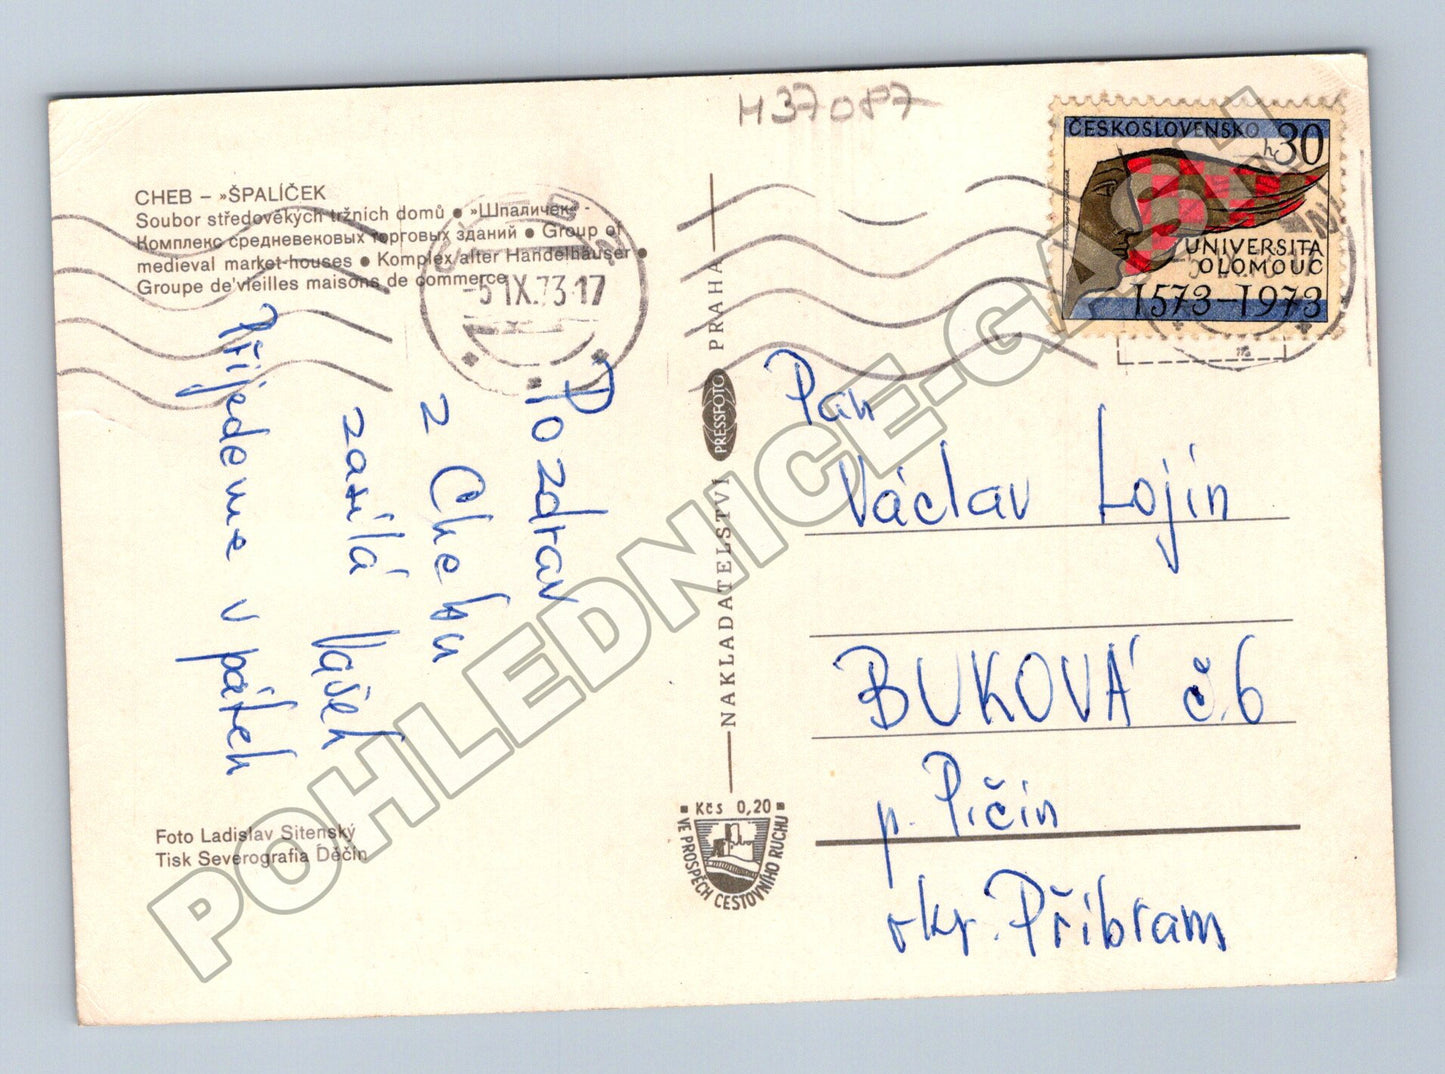 H37087
CHEB – »ŠPALÍČEK
Soubor středověkých tržních domů ● »Шпаличек« -
Комплекс средневековых торговых зданий ● Group of
medieval market-houses ● Komplex alter Handelhäuser ●
Groupe de vieilles maisons de commerce
CHEB
-5.IX.73-17
ČESKOSLOVENSKO
30 h
UNIVERSITA
OLOMOUC
1573–1973
Pozdrav
z Chebu
zasílá Vašek
Přijedeme v pátek
Foto Ladislav Sitenský
Tisk Severografia Děčín
NAKLADATELSTVÍ PRESSFOTO PRAHA
Kčs 0,20
VE PROSPĚCH CESTOVNÍHO RUCHU
Pan
Václav Lojín
BUKOVÁ č.6
p. Pičín
okr. Příbram
POHLEDNICE-GASH